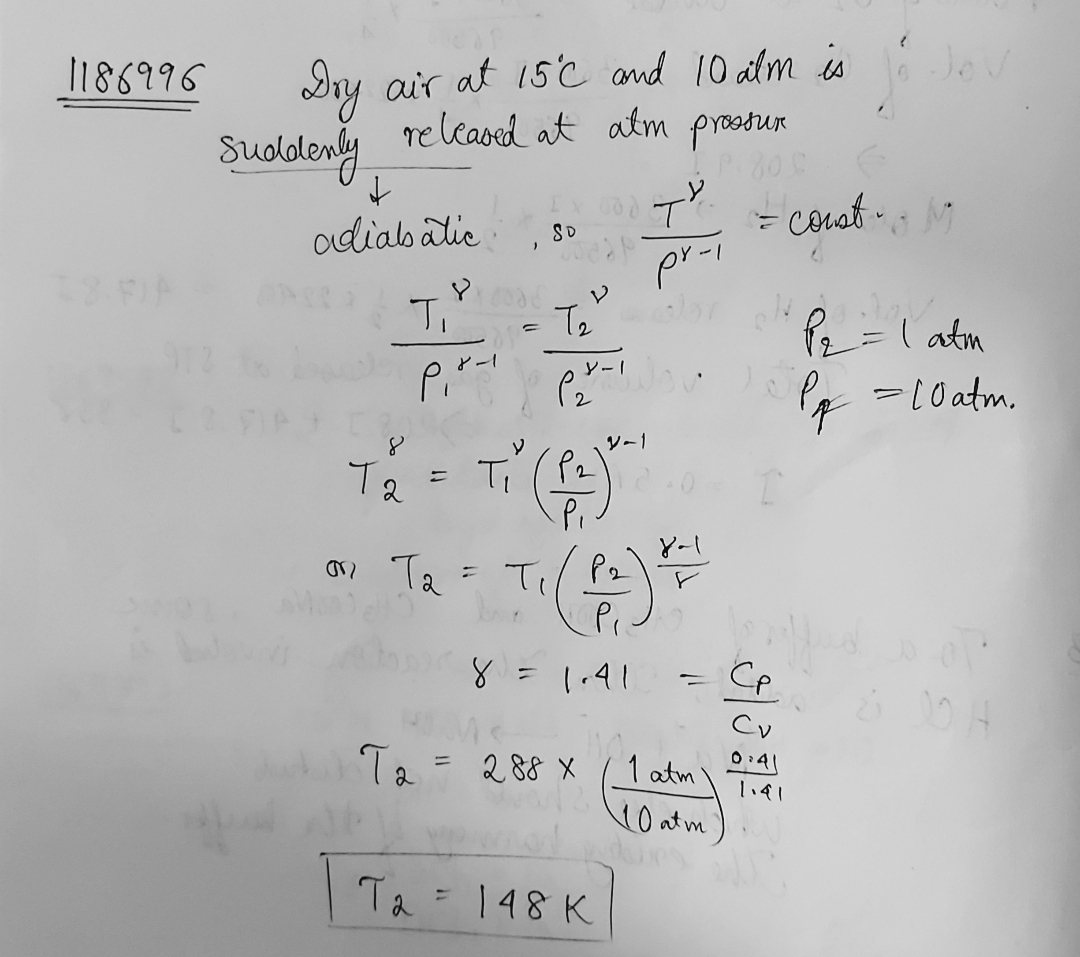 1186996 Dry air at 15°C and 10 atm is
suddenly released at atm pressur
↓
adiabatic, so T^γ / P^γ-1 = const.
T₁^γ / P₁^γ-1 = T₂^γ / P₂^γ-1
P₂ = 1 atm
P₁ = 10 atm.
T₂^γ = T₁^γ (P₂ / P₁)^γ-1
or T₂ = T₁ (P₂ / P₁)^γ-1/γ
γ = 1.41 = Cp / Cv
T₂ = 288 × (1 atm / 10 atm)^0.41/1.41
T₂ = 148 K